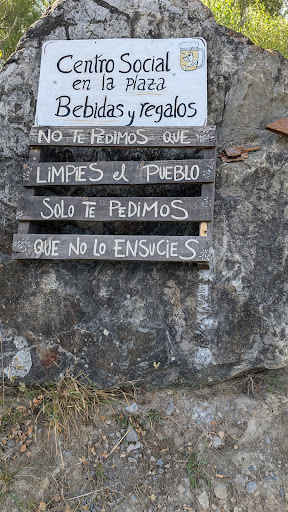 Centro Social
en la Plaza
Bebidas y regalos
NO TE PEDIMOS QUE
LIMPIES el PUEBLO
SOLO TE PEDIMOS
QUE NO LO ENSUCIES